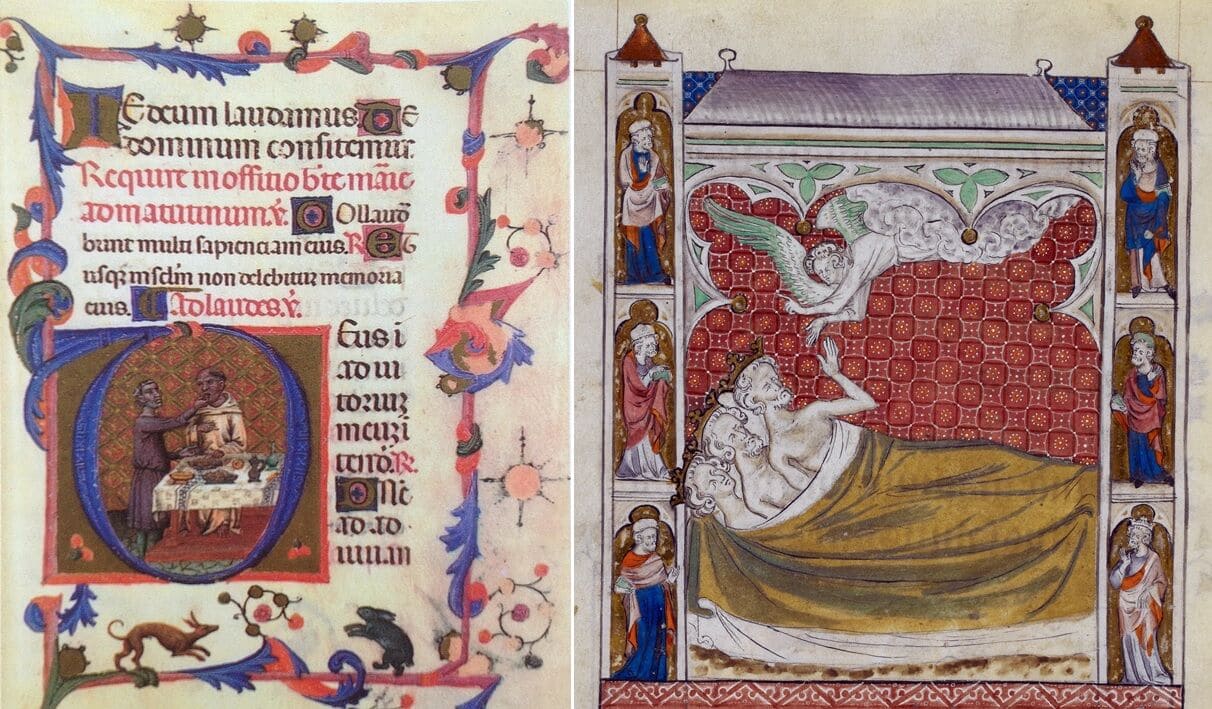 TEdeum laudamus TE
dominum confitemur.
Require in offitio bte marie
ad matutinum. v. COllauda
bunt multi sapientiam eius. R. ET
usqz in sclm non delebitur memoria
eius. Ad laudes. v.
DEus i
ad iu
toriuz
meuz i
tende. R.
DNe
ad ad
iuuan